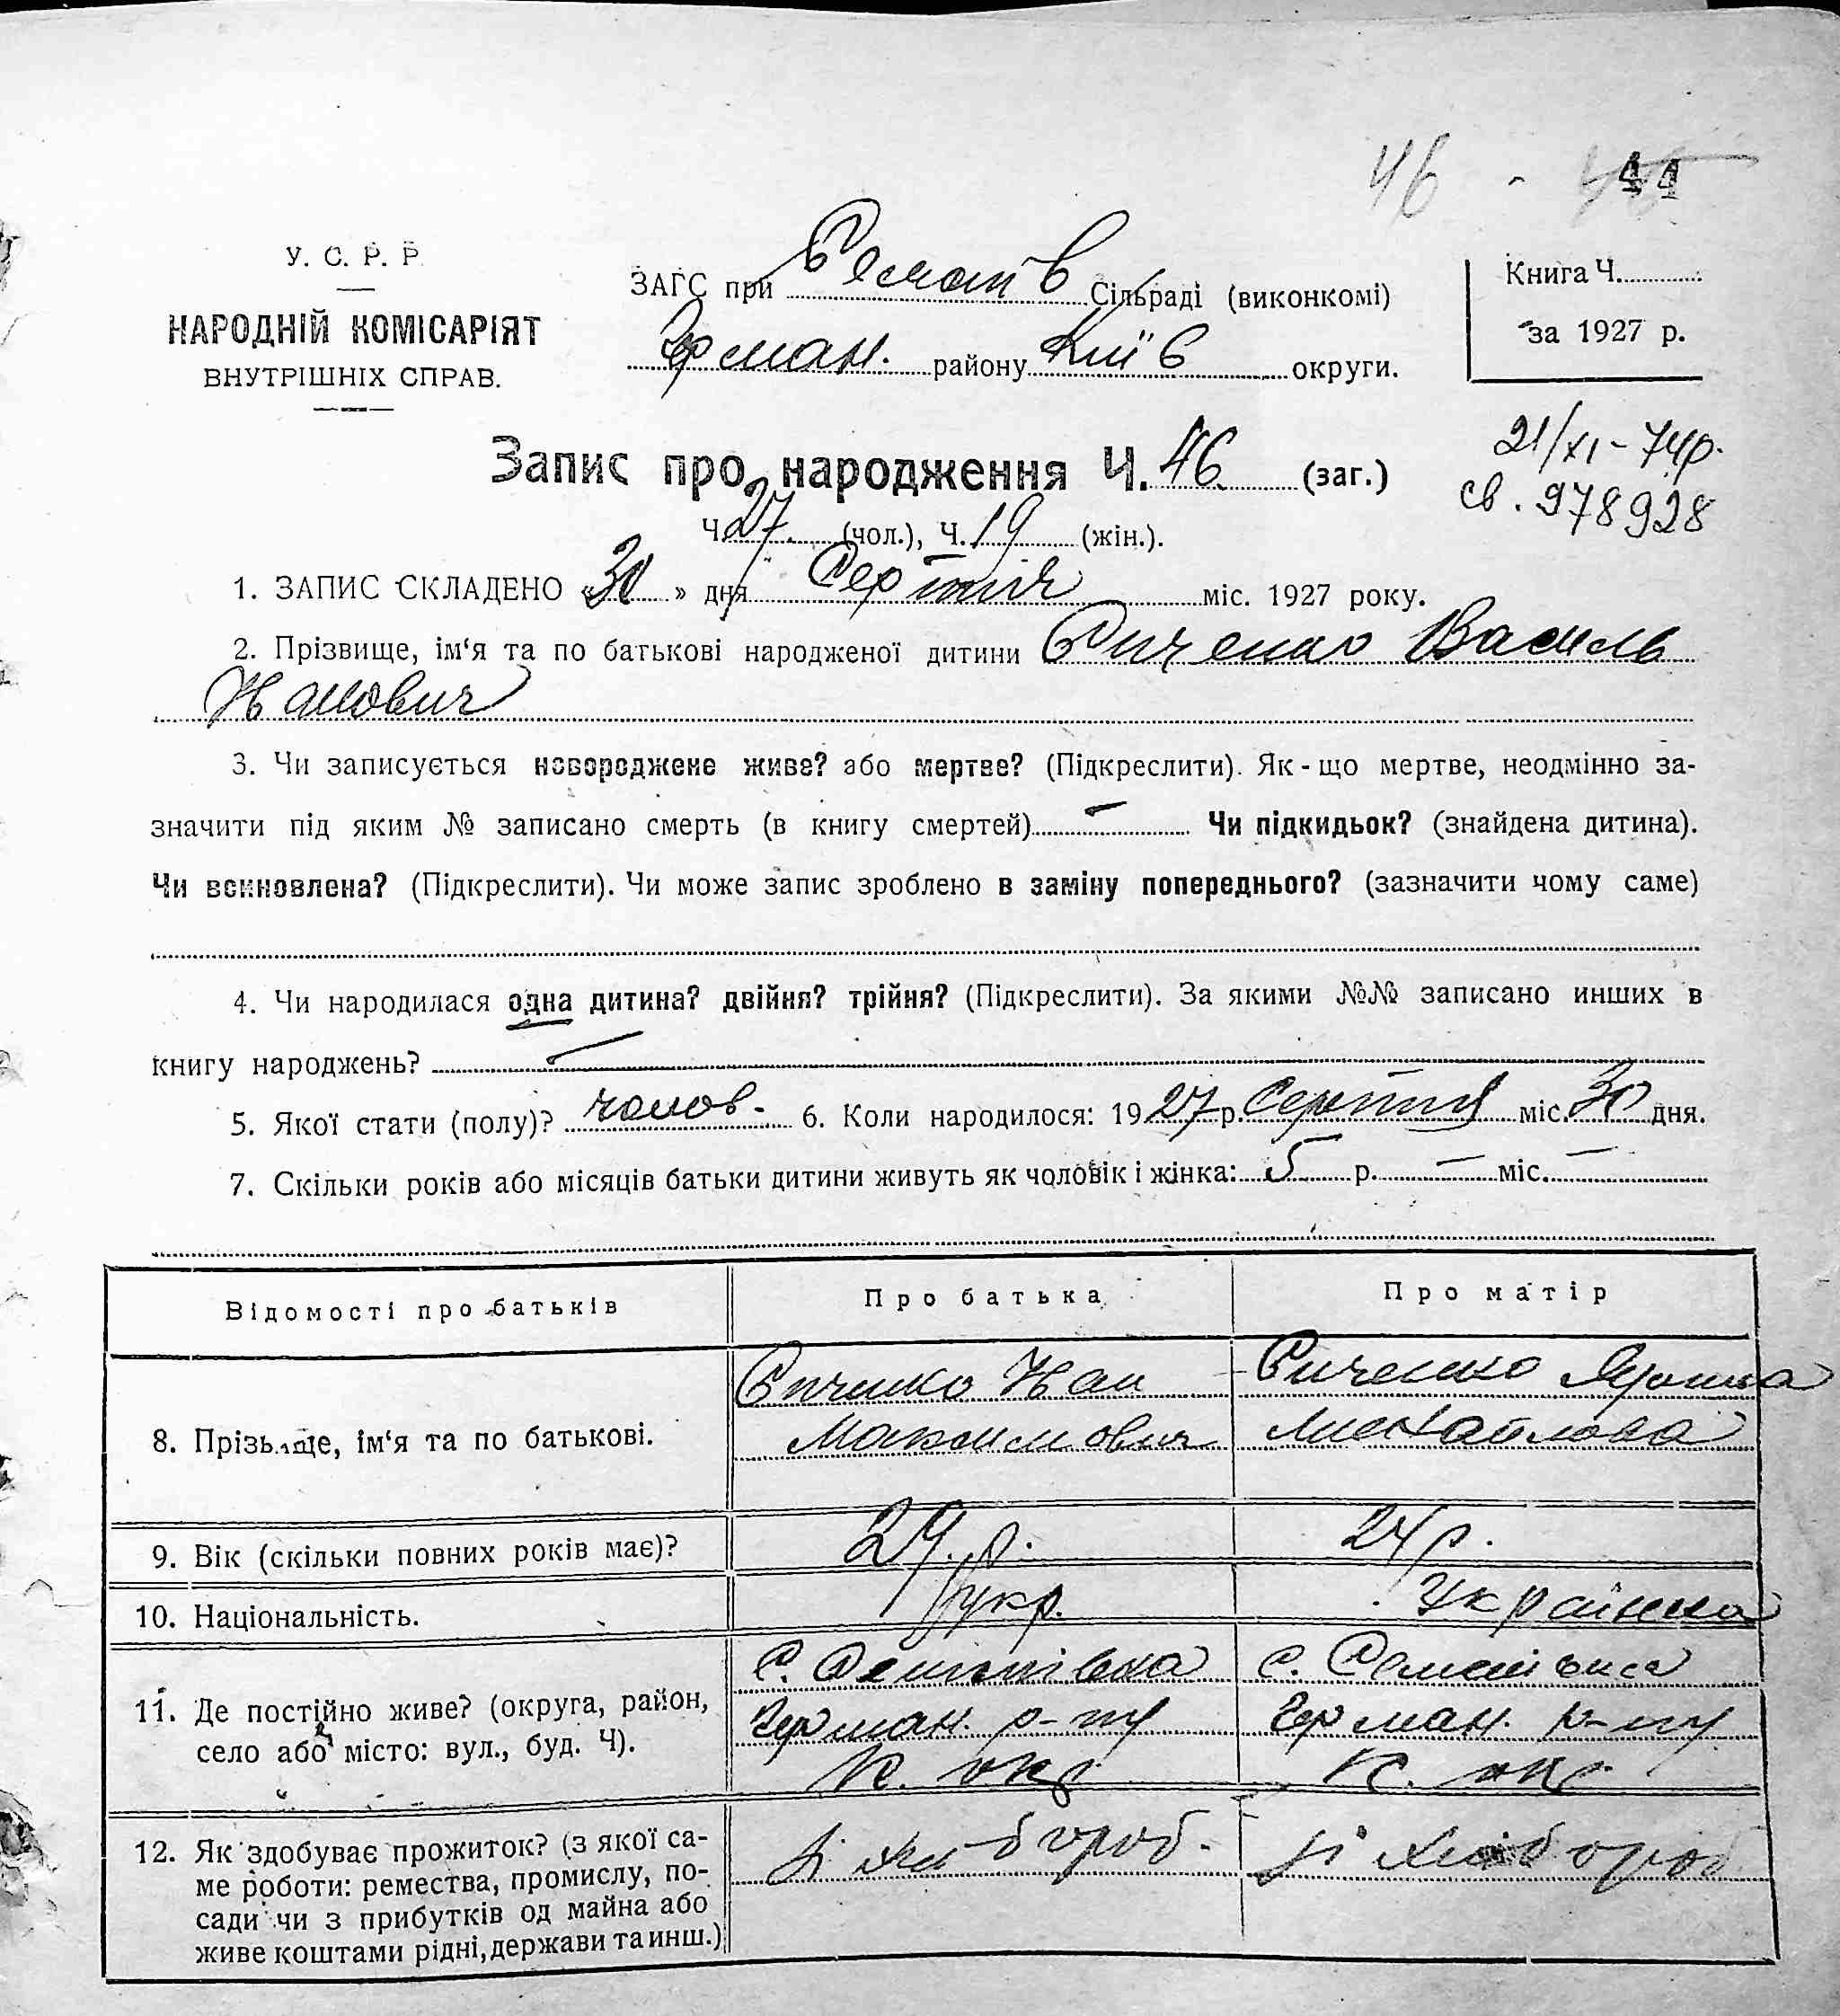 46 - 44
У. С. Р. Р.
НАРОДНІЙ КОМІСАРІЯТ
ВНУТРІШНІХ СПРАВ.
ЗАГС при Сільраді (виконкомі)
Герман. району Київ округи.
Книга Ч.
за 1927 р.
Запис про народження Ч. 46 (заг.)
21/XI - 74р.
св. 978928
Ч. 27 (чол.), Ч. 19 (жін.).
1. ЗАПИС СКЛАДЕНО «30» дня Серпня міс. 1927 року.
2. Прізвище, ім‘я та по батькові народженої дитини Василь
Іванович
3. Чи записується новороджене живе? або мертве? (Підкреслити). Як-що мертве, неодмінно за-
значити під яким № записано смерть (в книгу смертей) — Чи підкидьок? (знайдена дитина).
Чи всиновлена? (Підкреслити). Чи може запис зроблено в заміну попереднього? (зазначити чому саме)
4. Чи народилася одна дитина? двійня? трійня? (Підкреслити). За якими №№ записано инших в
книгу народжень? —
5. Якої стати (полу)? чолов. 6. Коли народилося: 1927 р. Серпня міс. 30 дня.
7. Скільки років або місяців батьки дитини живуть як чоловік і жінка: 5 р. — міс. —
Відомості про батьків Про батька Про матір
8. Прізвище, ім‘я та по батькові.
Іван
Максимович Михайлова
9. Вік (скільки повних років має)? 24 р.
10. Національність. укр. Українка
11. Де постійно живе? (округа, район,
село або місто: вул., буд. Ч).
Герман. р-ну Герман. р-ну
К. окр. К. окр.
12. Як здобуває прожиток? (з якої са-
ме роботи: ремества, промислу, по-
сади чи з прибутків од майна або
живе коштами рідні, держави та инш.)
хлібороб. хлібороб